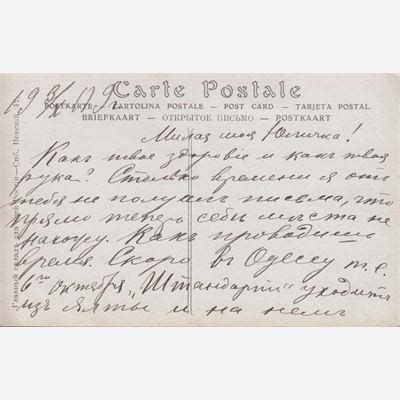 19 3/X 09 г.
Carte Postale
POSTKARTE — CARTOLINA POSTALE — POST CARD — TARJETA POSTAL
BRIEFKAART — ОТКРЫТОЕ ПИСЬМО — POSTKAART
Милая моя Юличка!
Какъ твое здоровіе и какъ твоя
рука? Столько времени я отъ
тебя не получалъ письма, что
прямо теперь себѣ мѣста не
нахожу. Какъ проводишь
время. Скоро въ Одессу т. е.
6го октября, „Штандартъ“ уходитъ
изъ Ялты и на немъ
Главный складъ для Спб. Невскій